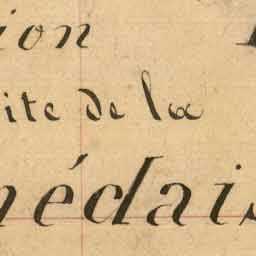 ion
ite de la
nédais